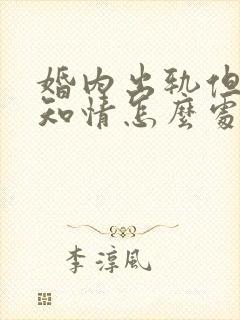 婚内出轨但
知情怎麽處
李淳風